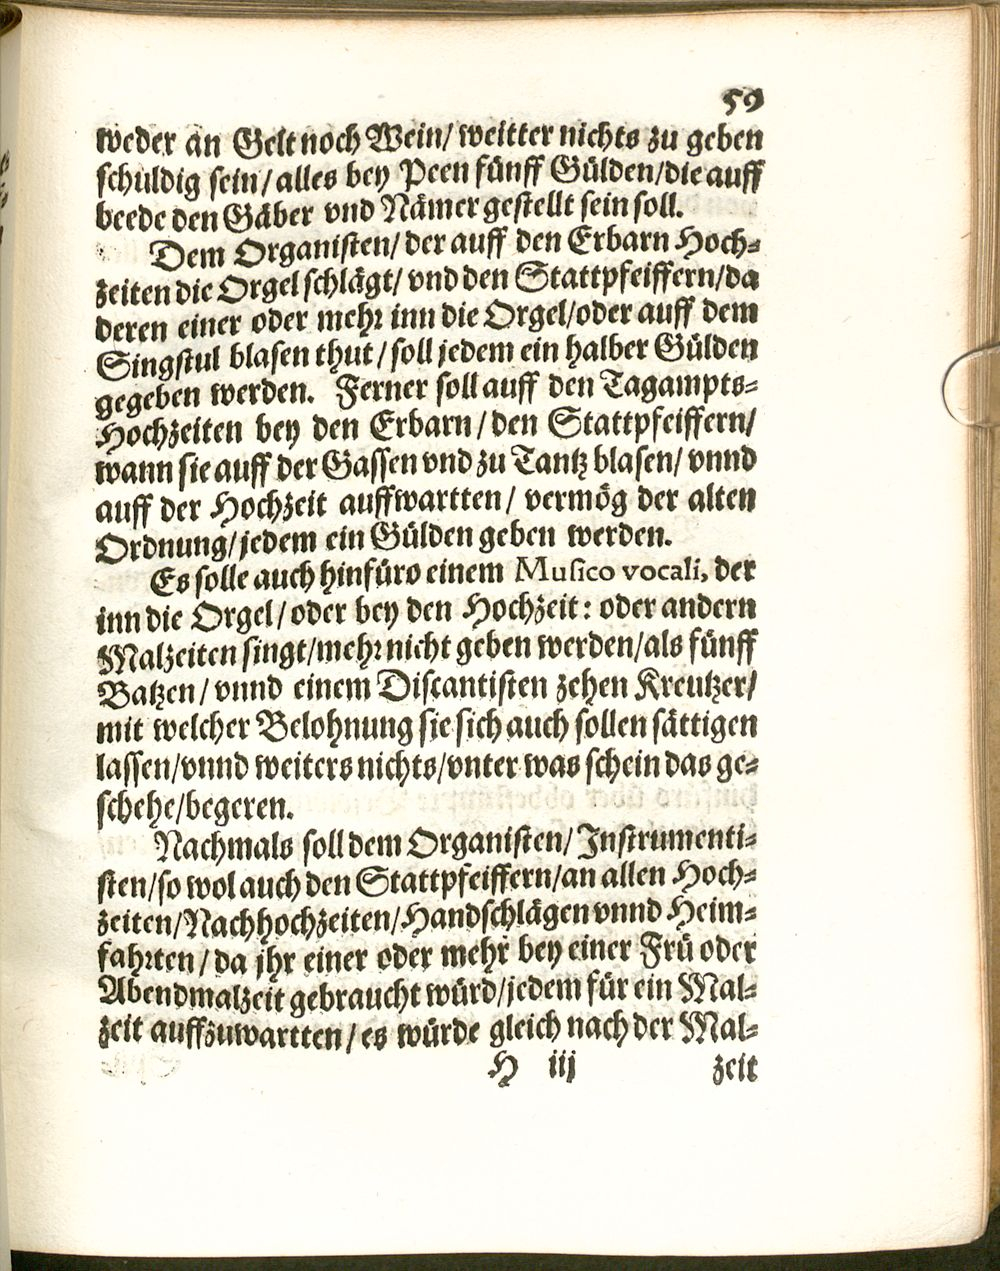 59
weder an Gelt noch Wein/ weitter nichts zu geben
schuldig sein/ alles bey Peen fünff Gülden/ die auff
beede den Gäber vnd Nämer gestellt sein soll.
Dem Organisten/ der auff den Erbarn Hoch⸗
zeiten die Orgel schlägt/ vnd den Stattpfeiffern/ da
deren einer oder mehr inn die Orgel/ oder auff dem
Singstul blasen thut/ soll jedem ein halber Gülden
gegeben werden. Ferner soll auff den Tagampts⸗
Hochzeiten bey den Erbarn/ den Stattpfeiffern/
wann sie auff der Gassen vnd zu Tantz blasen/ vnnd
auff der Hochzeit auffwartten/ vermög der alten
Ordnung/ jedem ein Gülden geben werden.
Es solle auch hinfüro einem Musico vocali, der
inn die Orgel/ oder bey den Hochzeit: oder andern
Malzeiten singt/ mehr nicht geben werden/ als fünff
Batzen/ vnnd einem Discantisten zehen Kreutzer/
mit welcher Belohnung sie sich auch sollen sättigen
lassen/ vnnd weiters nichts/ vnter was schein das ge⸗
schehe/ begeren.
Nachmals soll dem Organisten/ Instrumenti⸗
sten/ so wol auch den Stattpfeiffern/ an allen Hoch⸗
zeiten/ Nachhochzeiten/ Handschlägen vnnd Heim⸗
fahrten/ da jhr einer oder mehr bey einer Frü oder
Abendmalzeit gebraucht würd/ jedem für ein Mal⸗
zeit auffzuwartten/ es würde gleich nach der Mal⸗
H iij zeit